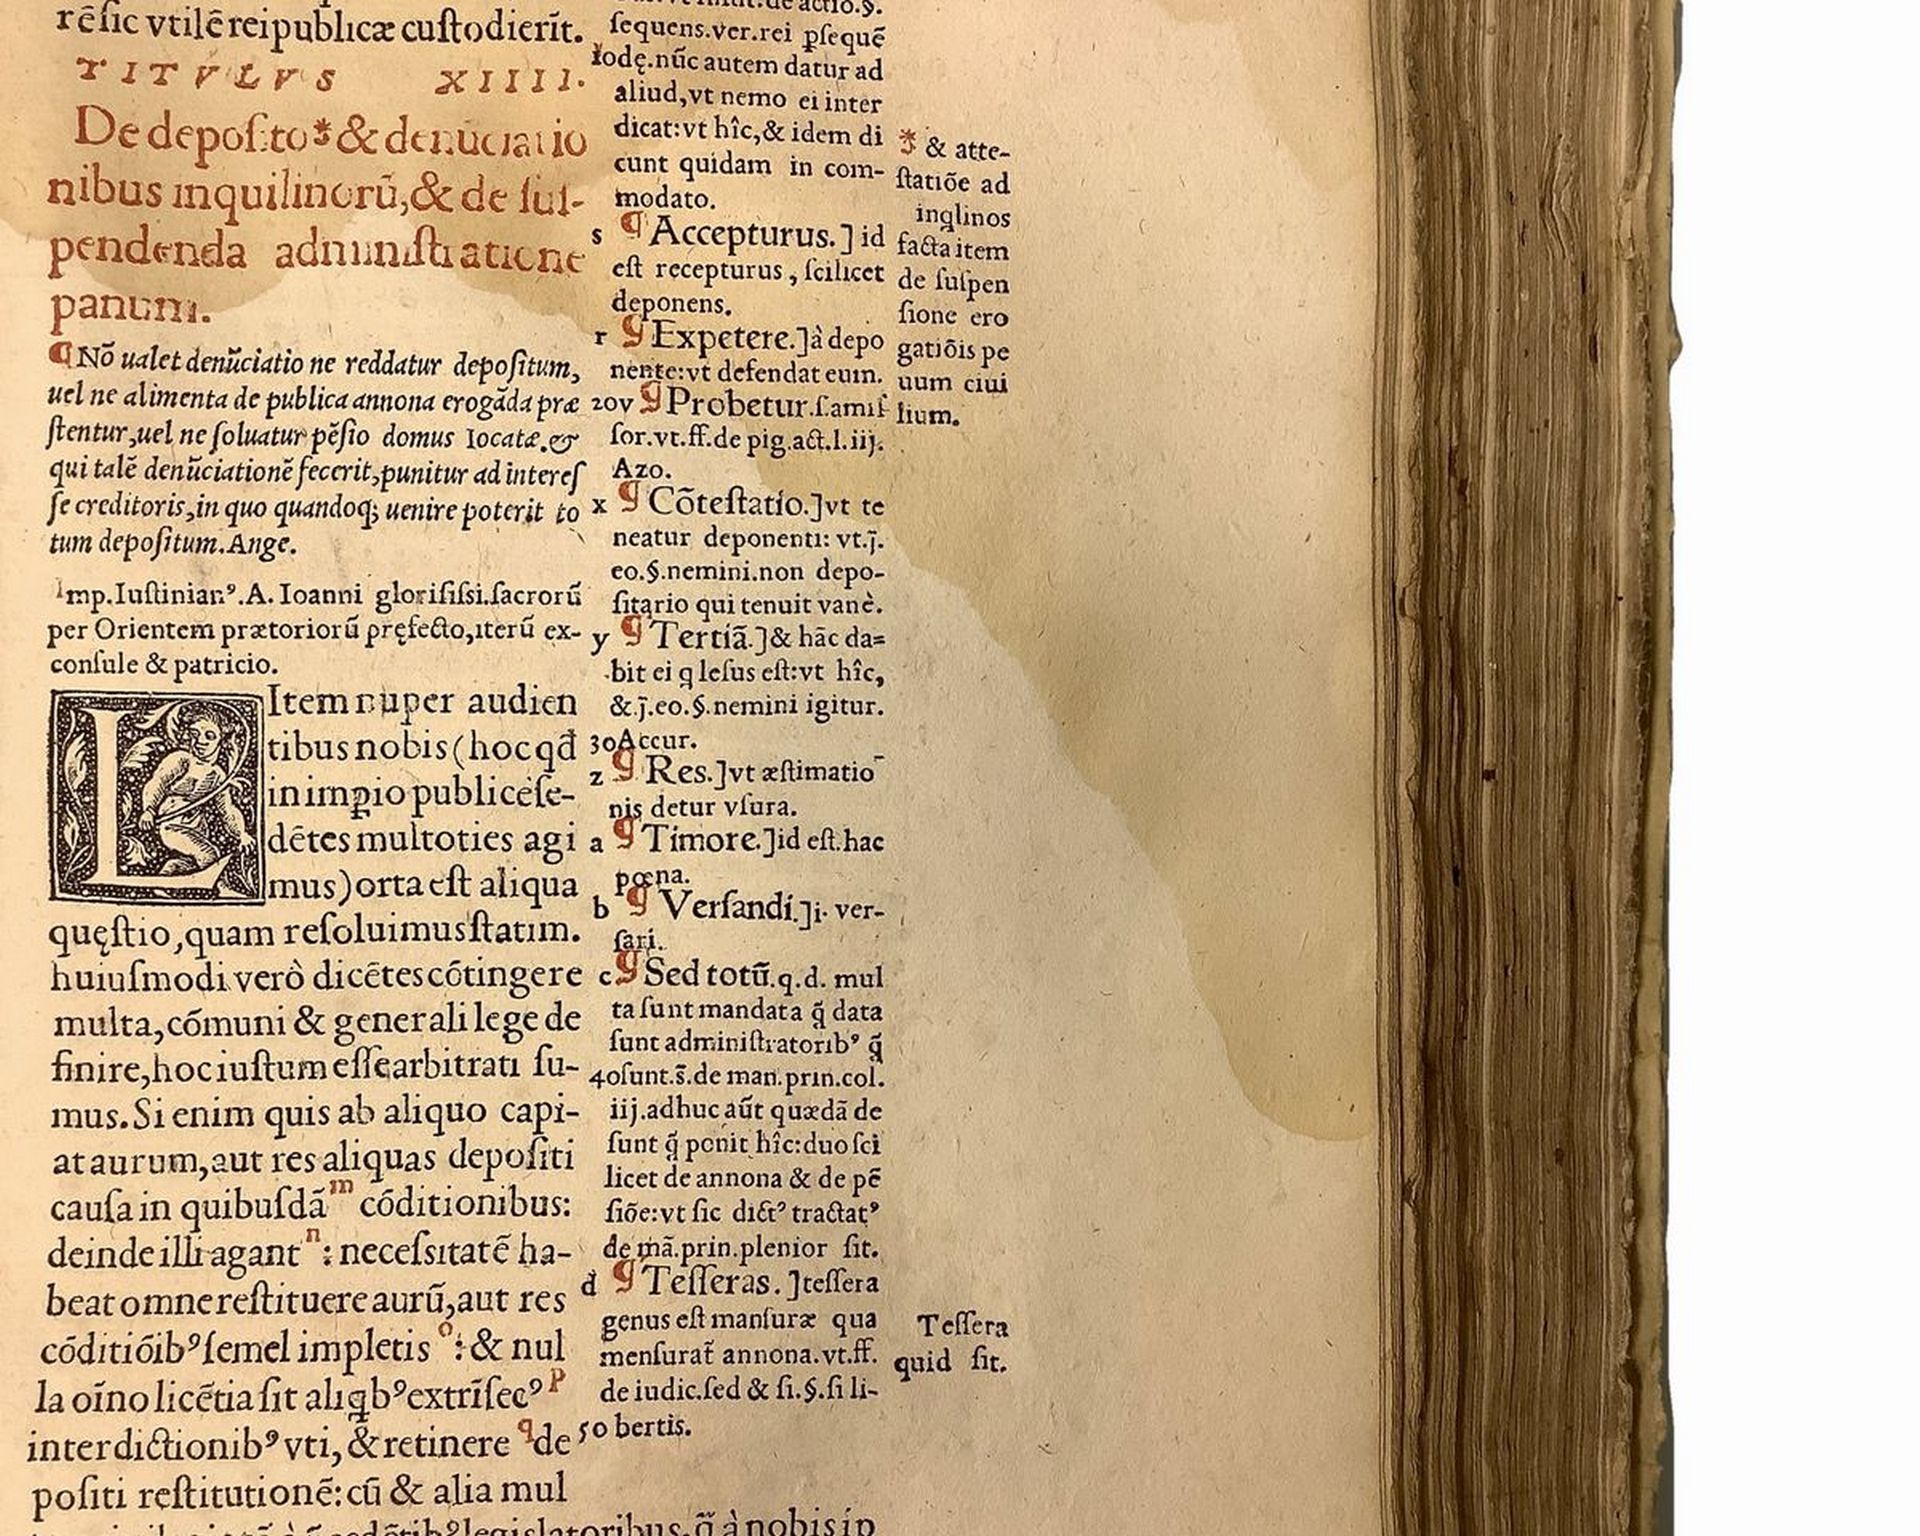 rẽsic vtilẽ reipublicæ custodierĩt.
TITVLVS XIIII.
De deposito* & denũciatio
nibus inquilinorũ, & de sus-
pendenda administratione
panum.
¶ Nõ ualet denũciatio ne reddatur depositum,
uel ne alimenta de publica annona erogãda præ
stentur, uel ne soluatur pẽsio domus locatæ. &
qui talẽ denũciationẽ fecerit, punitur ad interes
se creditoris, in quo quandoq; uenire poterit to
tum depositum. Ange.
Imp. Iustinianꝰ. A. Ioanni glorisissi. sacrorũ
per Orientem prætoriorũ pręfecto, iterũ ex-
consule & patricio.
LItem nuper audien
tibus nobis (hoc qđ
in imꝑio publicè se-
dẽtes multoties agi
mus) orta est aliqua
quęstio, quam resoluimus statim.
huiusmodi verò dicẽtes cõtingere
multa, cõmuni & generali lege de
finire, hoc iustum esse arbitrati su-
mus. Si enim quis ab aliquo capi-
at aurum, aut res aliquas depositi
causa in quibusdã m cõditionibus:
deinde illi agant n : necessitatẽ ha-
beat omne restituere aurũ, aut res
cõditiõibꝰ semel impletis o : & nul
la oĩno licẽtia sit aliꝗbꝰ extrĩsecꝰ p
interdictionibꝰ vti, & retinere q de
positi restitutionẽ: cũ & alia mul
legislatoribus, q̃ à nobis ip
sequens. ver. rei ꝑsequẽ
do ę. nũc autem datur ad
aliud, vt nemo ei inter
dicat: vt hîc, & idem di
cunt quidam in com-
modato.
s ¶ Accepturus. ] id
est recepturus, scilicet
deponens.
r ¶ Expetere. ] à depo
nente: vt defendat eum.
20 v ¶ Probetur. s. amis
sor. vt. ff. de pig. act. l. iij.
Azo.
x ¶ Cõtestatio. ] vt te
neatur deponenti: vt. j̃.
eo. §. nemini. non depo-
sitario qui tenuit vanè.
y ¶ Tertiã. ] & hãc da=
bit ei ꝗ lesus est: vt hîc,
& j̃. eo. §. nemini igitur.
30 Accur.
z ¶ Res. ] vt æstimatio
nis detur vsura.
a ¶ Timore. ] id est. hac
pœna.
b ¶ Versandi. ] i. ver-
sari.
c ¶ Sed totũ. q. d. mul
ta sunt mandata q̃ data
sunt administratoribꝰ q̃
40 sunt. s̃. de man. prin. col.
iij. adhuc aũt quædã de
sunt q̃ ponit hîc: duo sci
licet de annona & de pẽ
siõe: vt sic dictꝰ tractatꝰ
de mã. prin. plenior sit.
d ¶ Tesseras. ] tessera
genus est mansuræ qua
mensurat̃ annona. vt. ff.
de iudic. sed & si. §. si li-
50 bertis.
* & atte-
statiõe ad
inꝗlinos
facta item
de suspen
sione ero
gatiõis pe
uum ciui
lium.
Tessera
quid sit.